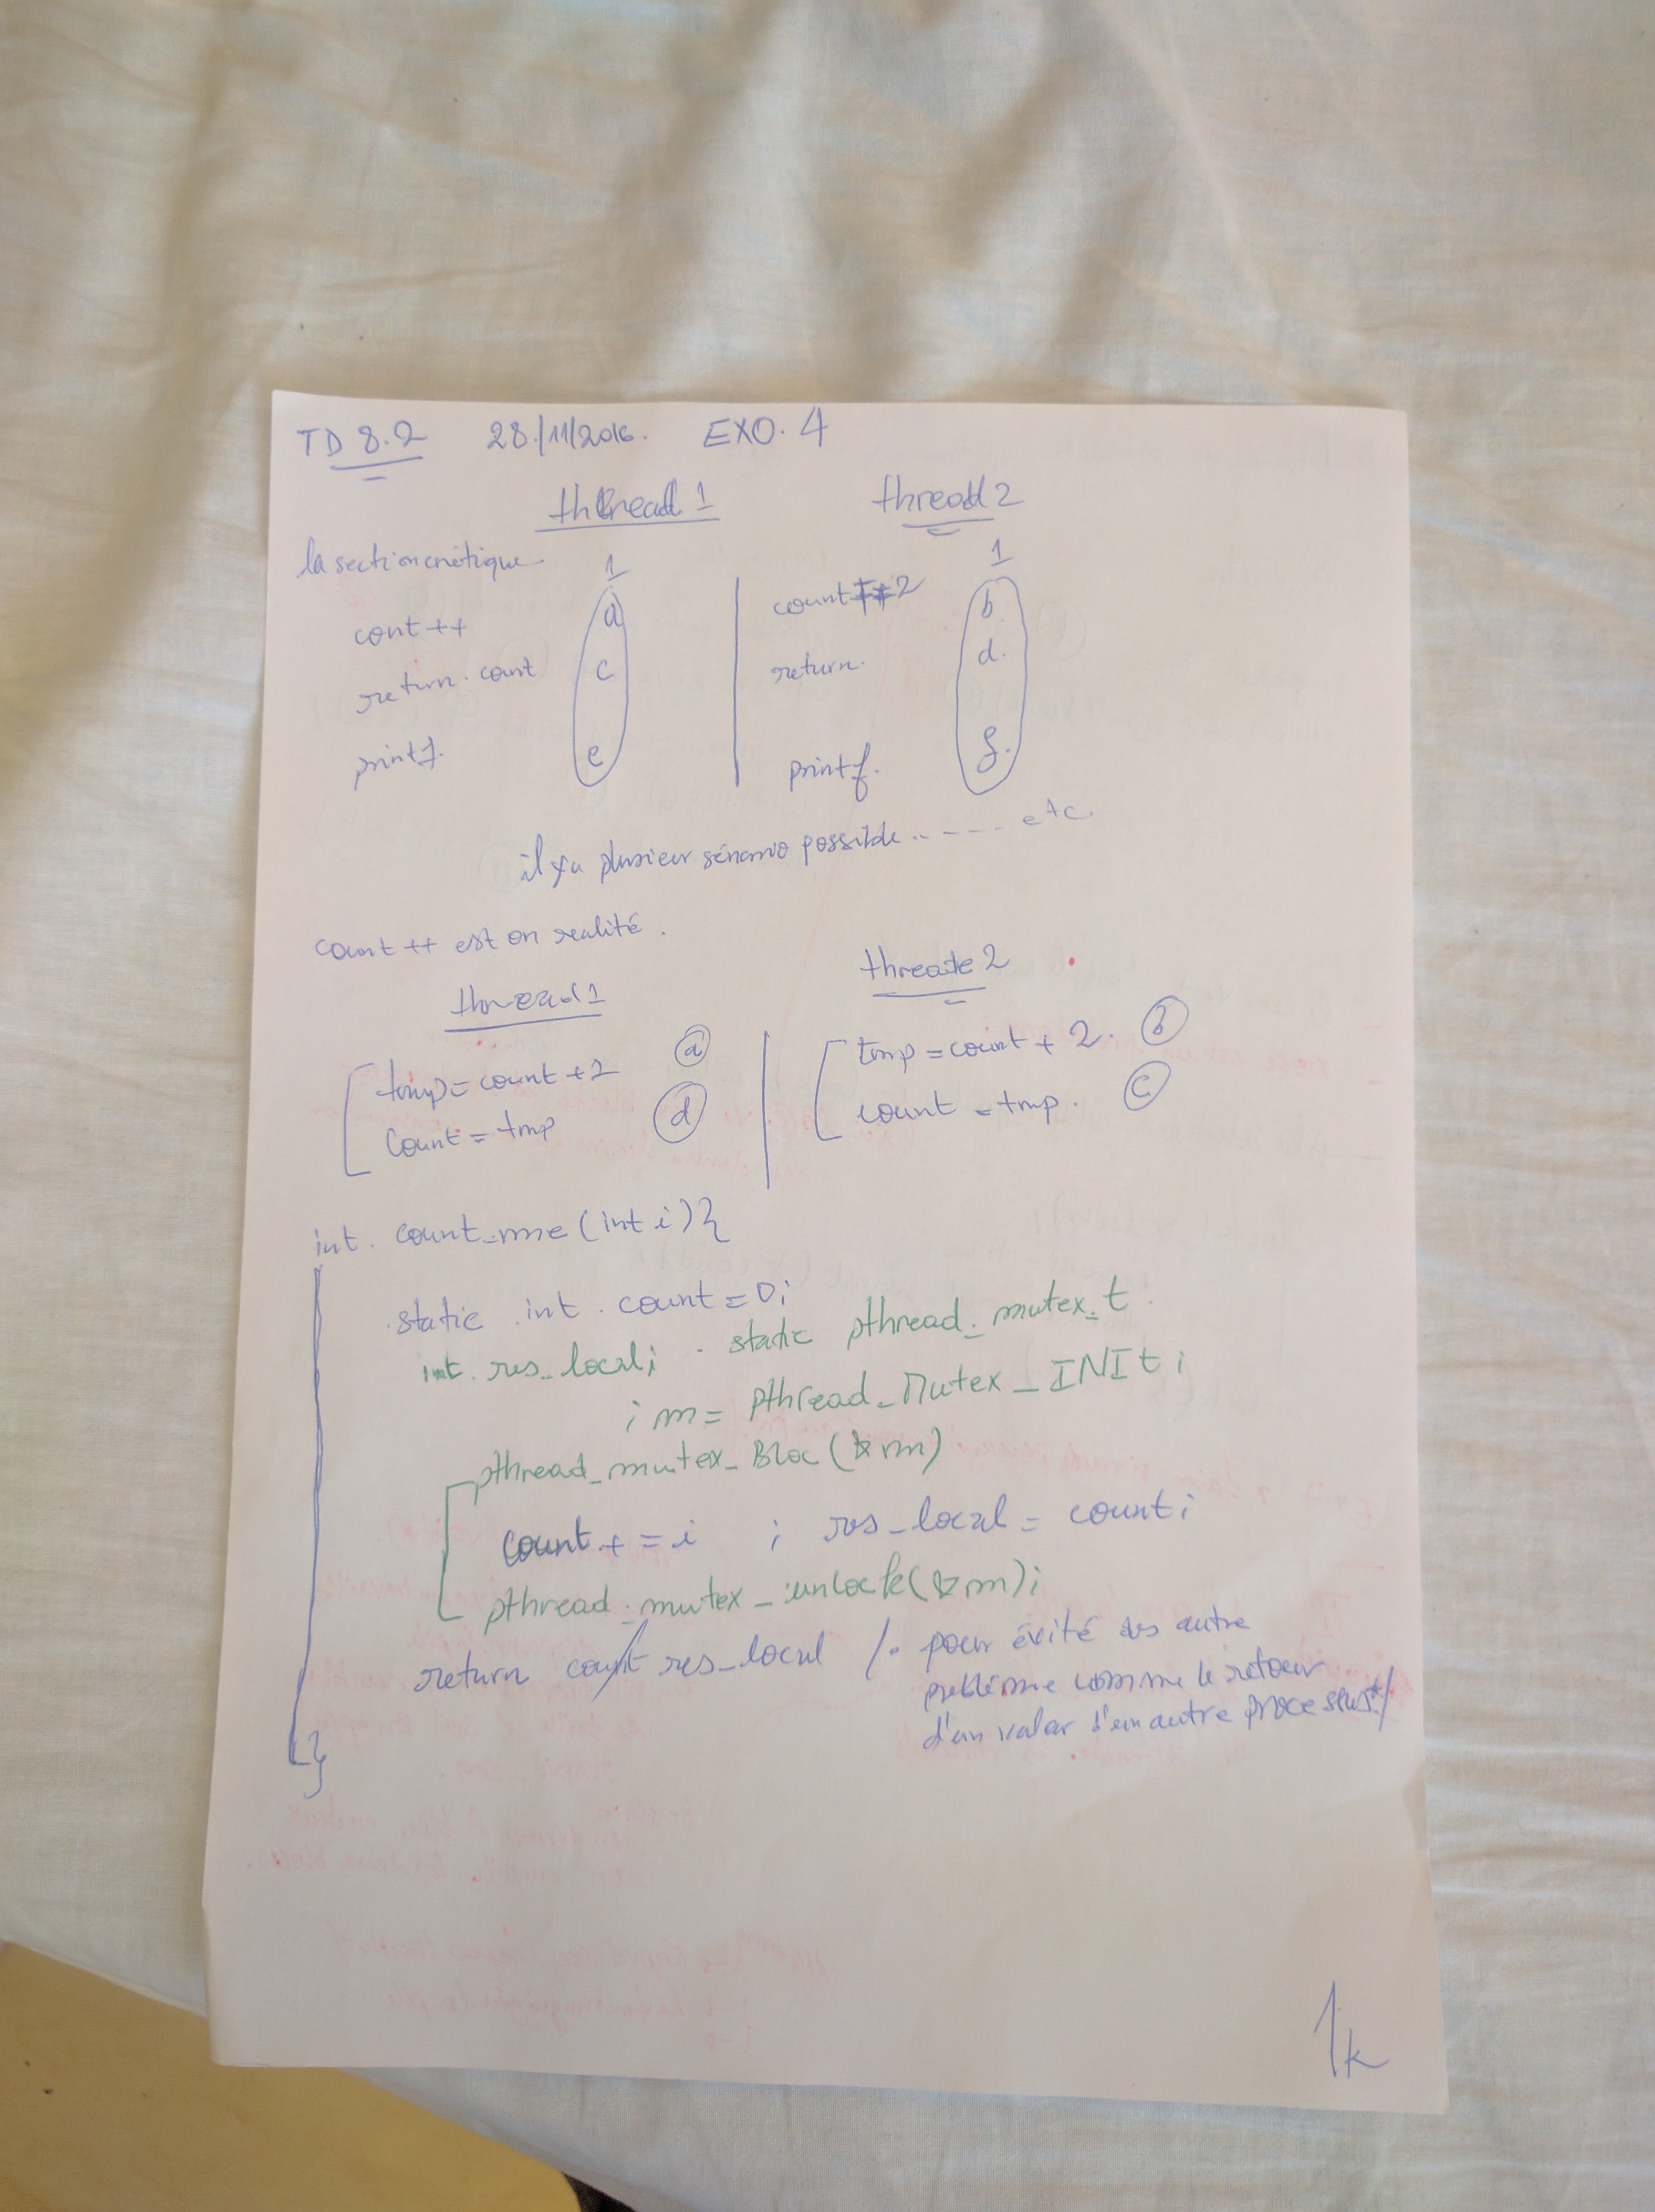 TD 8.2 28/11/2016. EXO. 4
thread 1 thread 2
la section critique 1 1
cont ++ a count 2 b.
return. count c return. d.
printf. e printf. f.
il ya plusieur sénario possible ..---- etc.
count ++ est en realité.
thread 1 threate 2
tmp = count +2 a tmp = count + 2. b
Count = tmp d count = tmp. c
int. count_me (int i) {
static int. count = 0;
int. res_local; static pthread_mutex_t.
; m = pthread_Mutex_INIt ;
pthread_mutex_Bloc (&m)
count + = i ; res_local = count ;
pthread_mutex_unlock (&m);
return count res_local /* pour évité des autre
problème comme le retour
d'un valar d'un autre processus */
}
1k